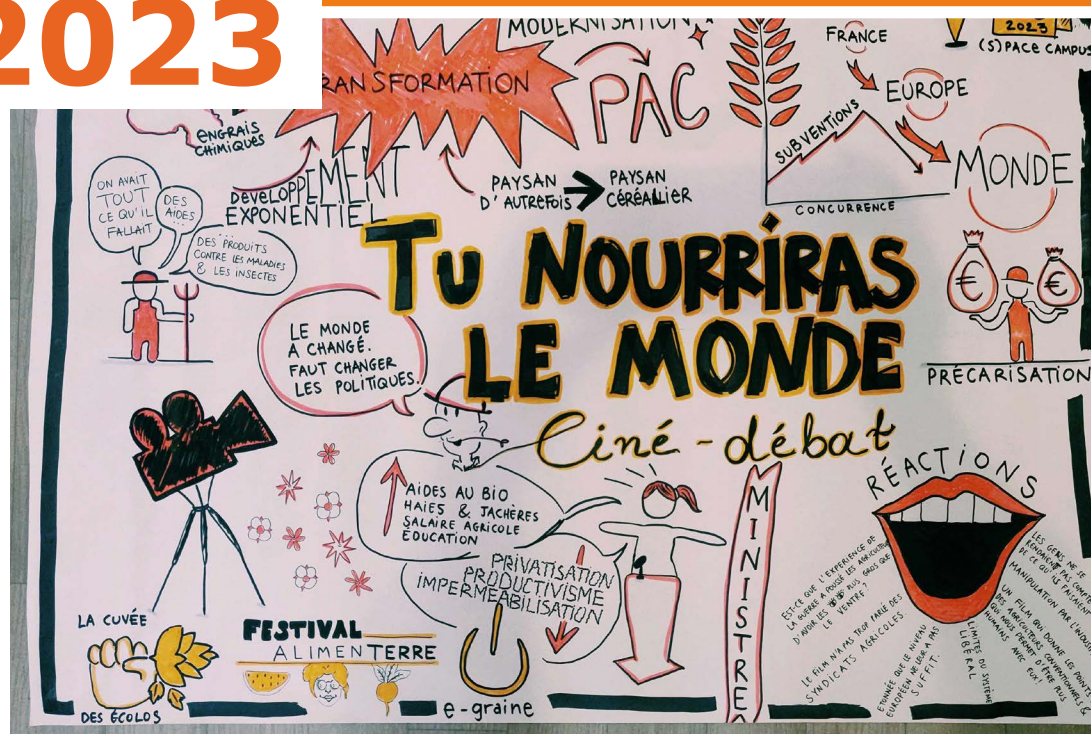 2023
MODERNISATION
TRANSFORMATION
PAC
FRANCE
EUROPE
MONDE
2023
(S)PACE CAMPUS
ENGRAIS
CHIMIQUES
DÉVELOPPEMENT
EXPONENTIEL
PAYSAN
D'AUTREFOIS
PAYSAN
CÉRÉALLIER
SUBVENTIONS
CONCURRENCE
ON AVAIT
TOUT
CE QU'IL
FALLAIT
DES
AIDES
DES PRODUITS
CONTRE LES MALADIES
& LES INSECTES
TU NOURRIRAS
LE MONDE
Ciné-débat
€
€
PRÉCARISATION
LE MONDE
A CHANGÉ.
FAUT CHANGER
LES POLITIQUES.
AIDES AU BIO
HAIES & JACHÈRES
SALAIRE AGRICOLE
ÉDUCATION
PRIVATISATION
PRODUCTIVISME
IMPERMÉABILISATION
MINISTRE
RÉACTIONS
EST-CE QUE L'EXPÉRIENCE DE
LA GUERRE A POUSSÉ LES AGRICULTEURS
D'AVOIR LES PLUS GROS QUE
LE VENTRE?
LE FILM N'A PAS TROP PARLÉ DES
SYNDICATS AGRICOLES
ÉTONNÉE QUE LE NIVEAU
EUROPÉEN NE LEUR A PAS
SUFFIT.
LIMITES DU SYSTÈME
LIBÉRAL
UN FILM QUI DONNE LES POINTS
DES AGRICULTEURS CONVENTIONNELS &
QUI NOUS PERMET D'ÊTRE PLUS
HUMAINS AVEC EUX
MANIPULATION PAR
LES GENS NE SE
RENDAIENT PAS COMPTE
DE CE QU'ILS FAISAIENT
LA CUVÉE
DES ÉCOLOS
FESTIVAL
ALIMENTERRE
e-graine